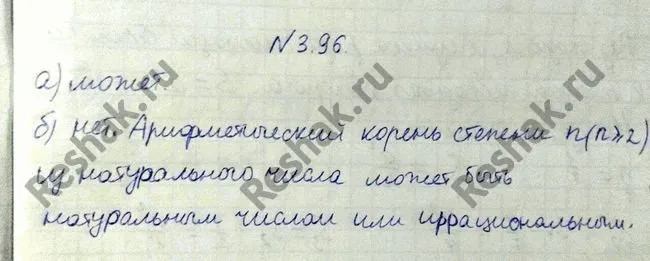 N3.96.
а) может
б) нет. Арифметический корень степени n(n≥2)
из натурального числа может быть
натуральным числом или иррациональным.
Reshak.ru
Reshak.ru
Reshak.ru